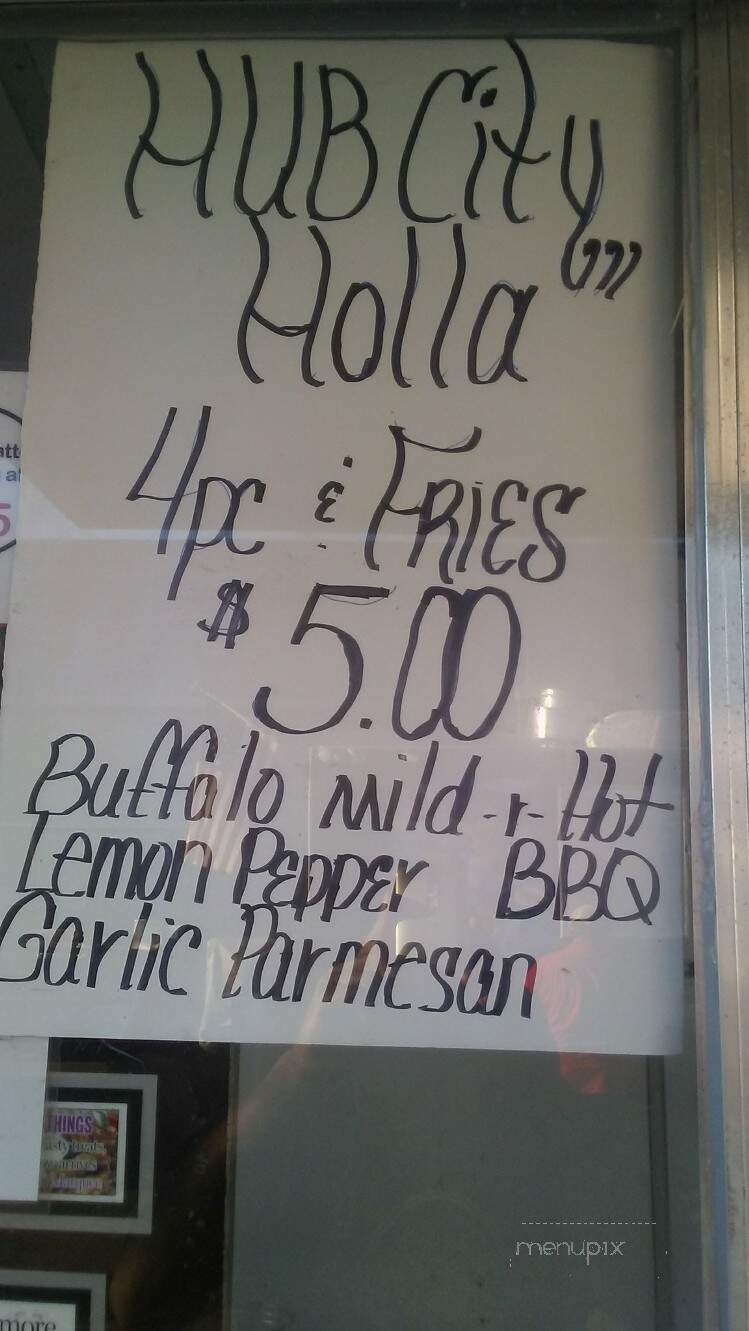 HUB City
Holla"
4pc & FRiES
$5.00
Buffalo mild -r- Hot
Lemon PEppEr BBQ
Garlic Parmesan
THINGS
more
menupix